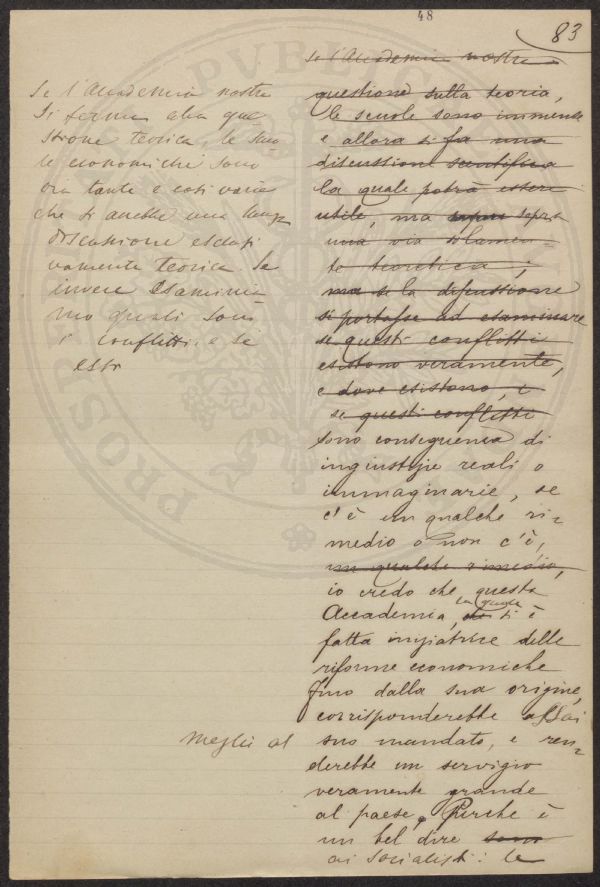 48
83
se l'Accademia nostra
questione sulla teoria,
le scuole sono immense
e allora si fa una
discussione scientifica
la quale potrà essere
utile, ma sopra
una via solamen-
te teoretica;
ma se la discussione
si portasse ad esaminare
se questi conflitti
esistono veramente,
e dove esistono, i
se questi conflitti
sono conseguenza di
ingiustizie reali o
immaginarie, se
c'è un qualche ri-
medio o non c'è,
un qualche rimedio,
io credo che questa
Accademia, la quale si è
fatta iniziatrice delle
riforme economiche
fino dalla sua origine,
corrisponderebbe assai
meglio al
suo mandato, e ren-
derebbe un servigio
veramente grande
al paese. Perche è
un bel dire
ai socialisti: le
Se l'Accademia nostra
si ferma alla que
stione teorica, le scuo
le economiche sono
ora tante e così varie
che si avrebbe una lunga
discussione esclusi
vamente teorica. Se
invece esaminia
mo quali sono
i conflitti e se
esis
PVBLICA
PROSP